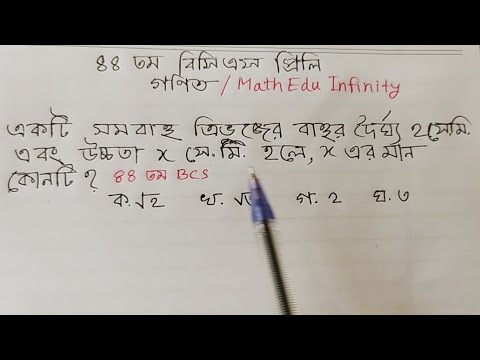 ৪৪ তম বিসিএস প্রিলি
গণিত / MathEdu Infinity
একটি সমবাহু ত্রিভুজের বাহুর দৈর্ঘ্য ২ সেমি.
এবং উচ্চতা x সে.মি. হলে, x এর মান
কোনটি ? ৪৪ তম BCS
ক. √২ খ. √ গ. ২ ঘ. ৩